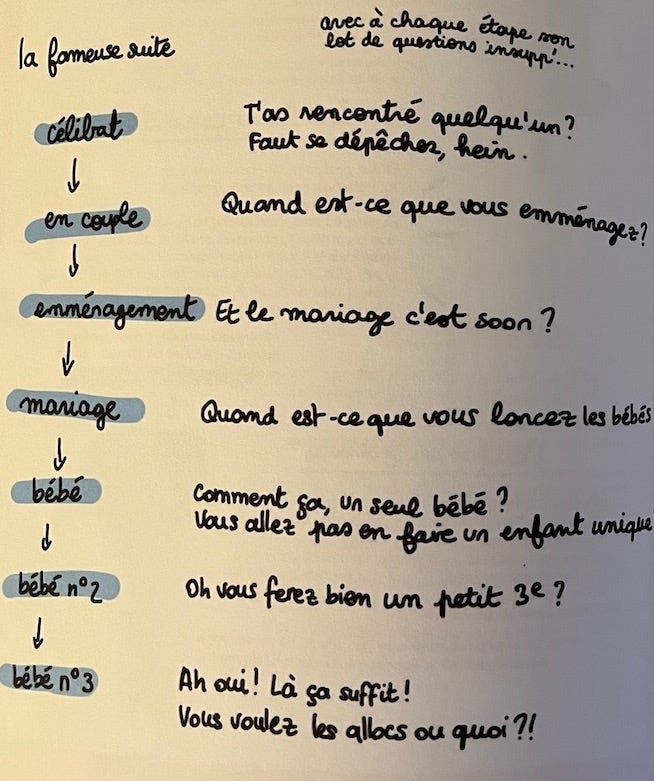 la fameuse suite
avec à chaque étape son
lot de questions insupp'...
célibat
T'as rencontré quelqu'un?
Faut se dépêcher, hein.
↓
en couple
Quand est-ce que vous emménagez?
↓
emménagement
Et le mariage c'est soon?
↓
mariage
Quand est-ce que vous lancez les bébés
↓
bébé
Comment ça, un seul bébé?
Vous allez pas en faire un enfant unique
↓
bébé n°2
Oh vous ferez bien un petit 3e?
↓
bébé n°3
Ah oui! Là ça suffit!
Vous voulez les allocs ou quoi?!